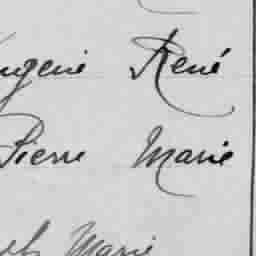 Eugenie René
Pierre Marie
Marie